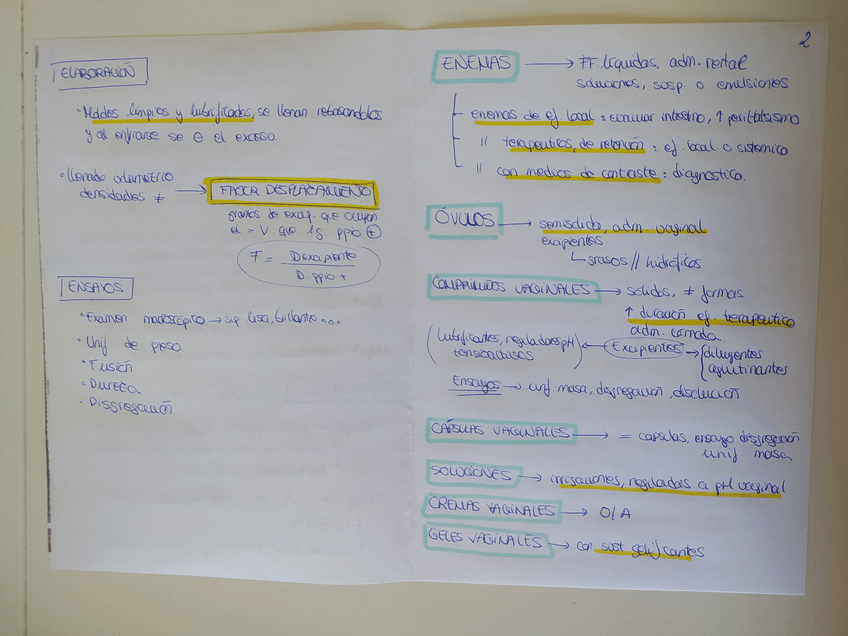 ELABORACIÓN
· Moldes limpios y lubrificados, se llenan rebasándolos
y al enfriarse se ⊖ el exceso.
· llenado volumétrico
densidades ≠ → FACTOR DESPLAZAMIENTO
gramos de excip. que ocupan
el = V. que 1g. ppio ⊕
F = D excipiente / D. ppio +
ENSAYOS
· Examen macroscópico → sup lisa, brillante...
· Unif. de peso.
· Fusión
· Dureza
· Disgregación
2
ENEMAS → FF líquidas. adm. rectal
soluciones, susp. o emulsiones
enemas de ef. local = evacuar intestino, ↑ peristaltismo
" terapeuticos, de retención : ef. local o sistémico
" con medios de contraste = diagnostico.
ÓVULOS → semisolido, adm. vaginal
excipientes
grasos // hidrofilos
COMPRIMIDOS VAGINALES → solidos, ≠ formas.
↑ duración ef. terapeutico
adm. comoda.
(lubrificantes, reguladores pH
tensioactivos) ← Excipientes → diluyentes
aglutinantes
Ensayos → unif masa, disgregación, disolución.
CÁPSULAS VAGINALES → = capsulas, ensayo disgregación
unif. masa
SOLUCIONES → irrigaciones, reguladas a pH vaginal
CREMAS VAGINALES → O/A
GELES VAGINALES → con sust gelificantes